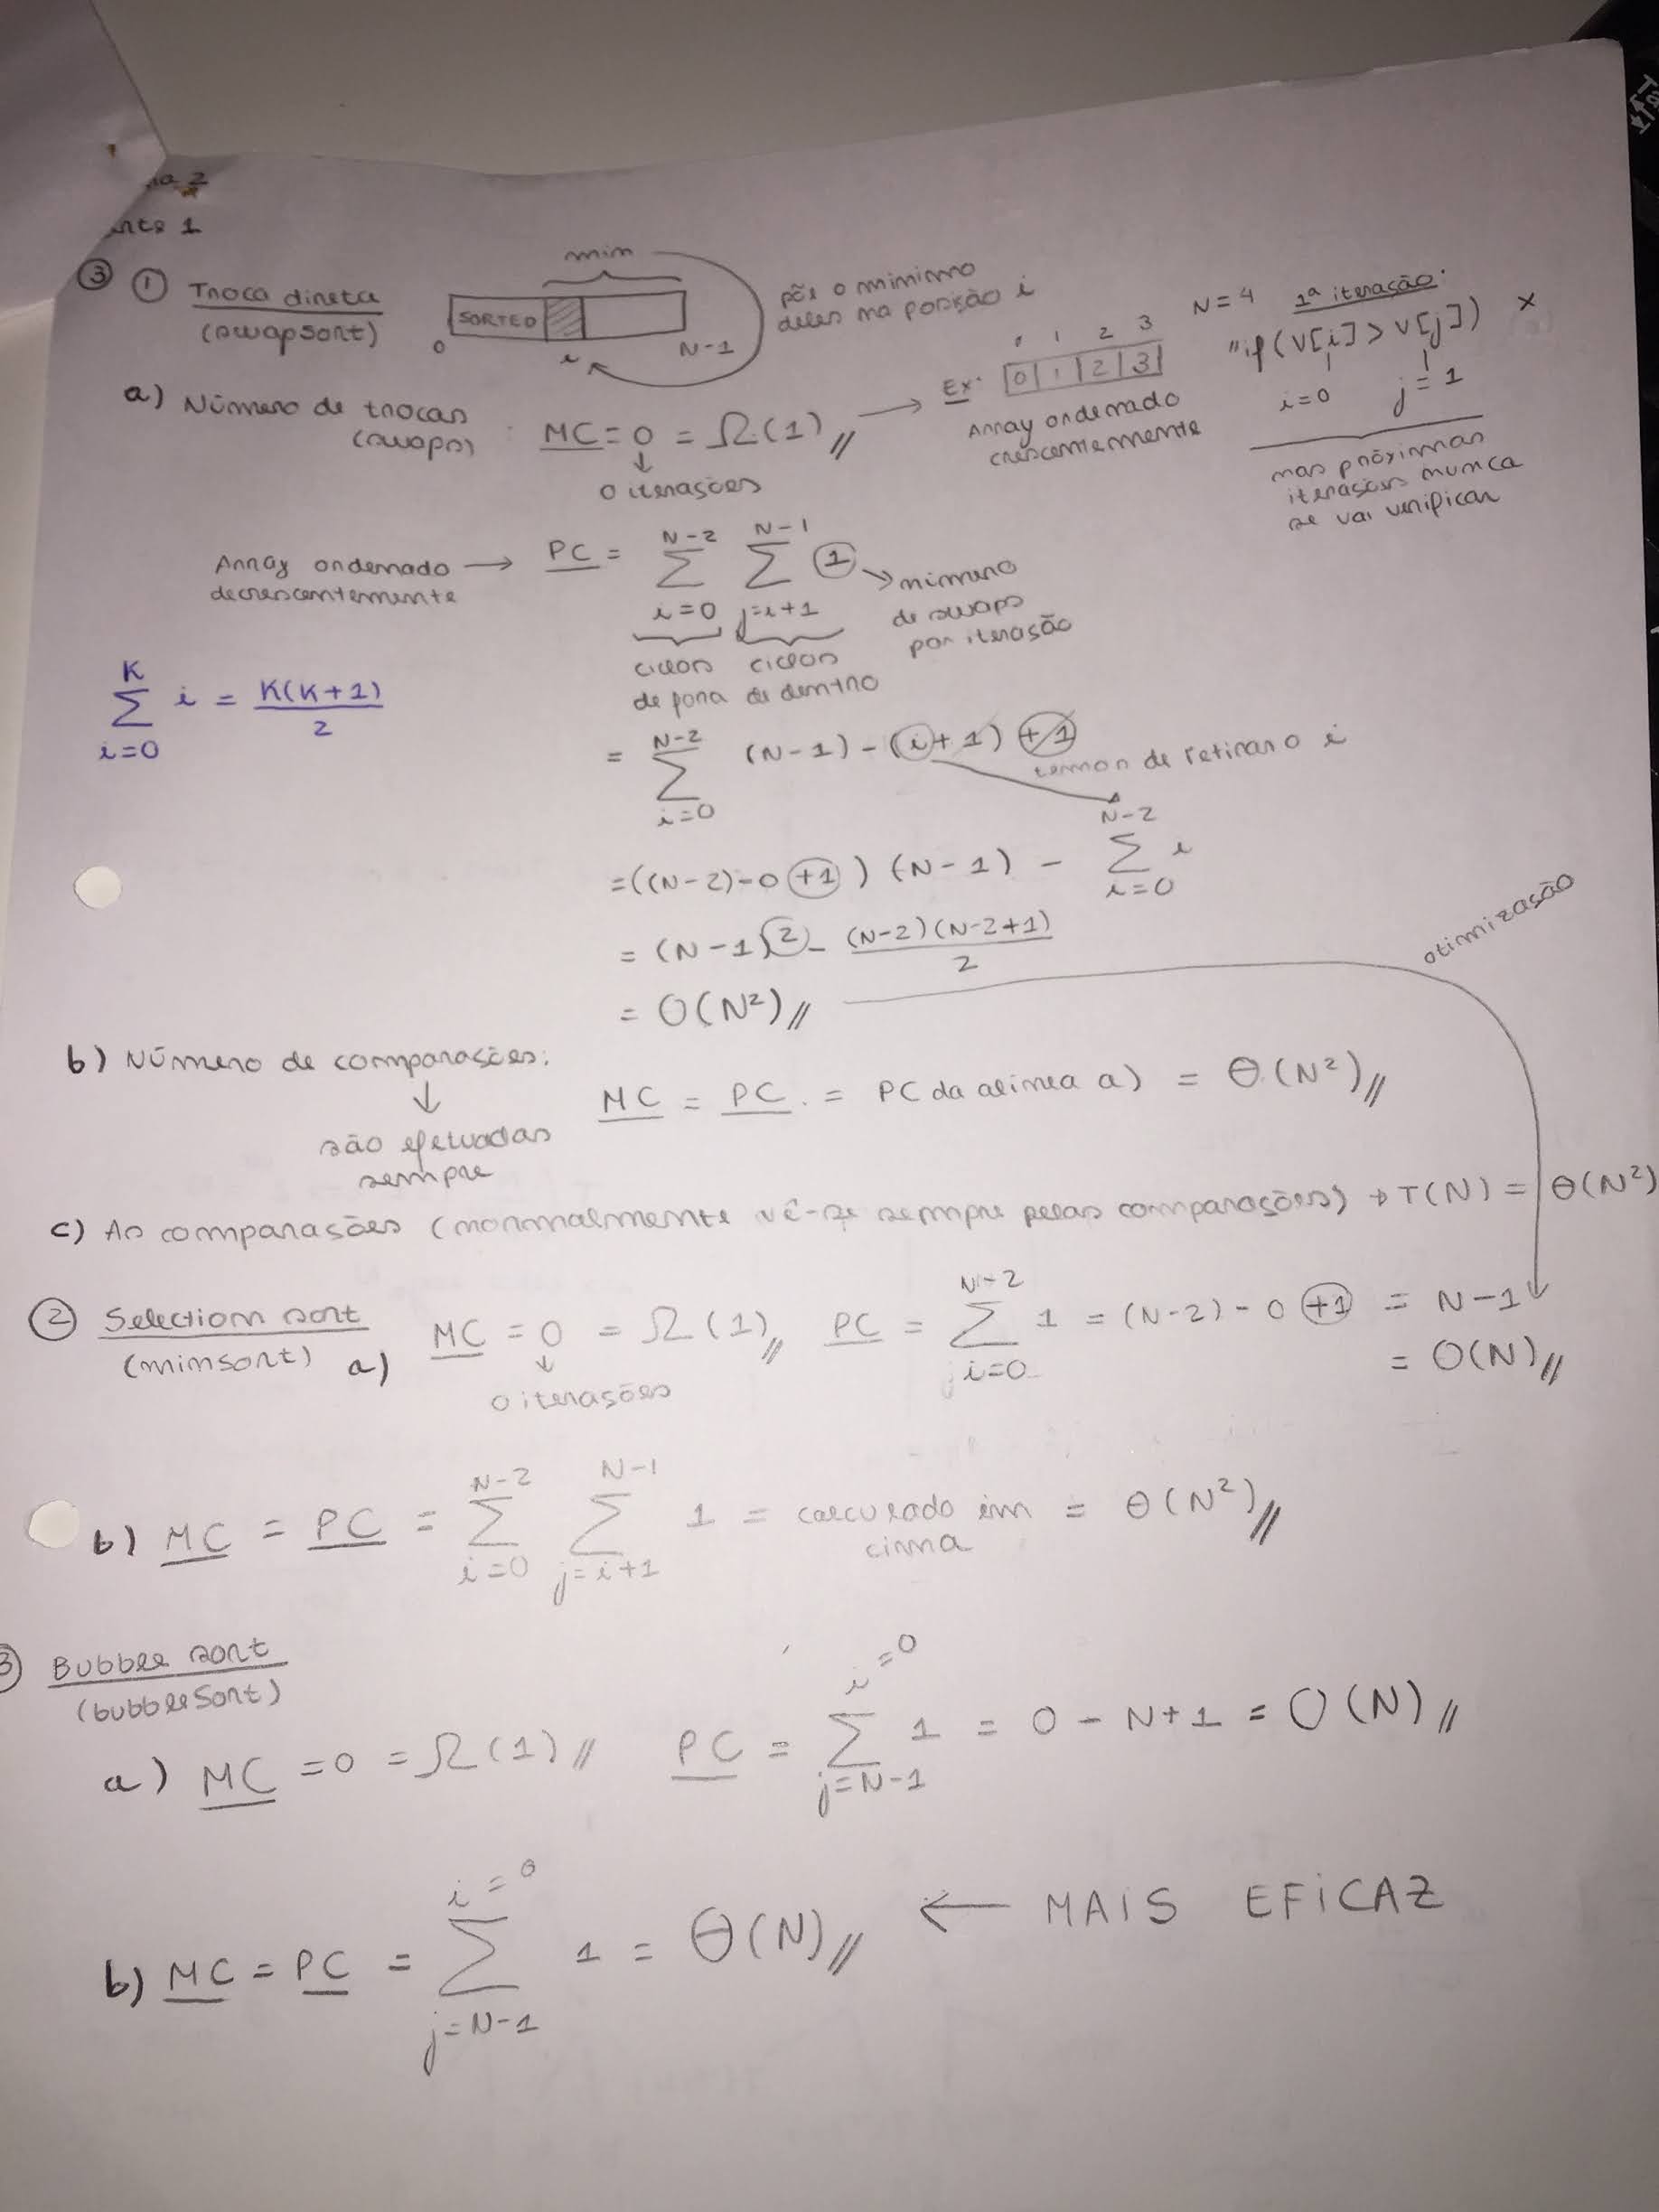 2
1
③ ① Troca direta
(swapsort)
min
SORTED
0
i
N-1
põe o minimno
deles na posição i
a) Número de trocas
(swaps) : MC = 0 = Ω(1)//
↓
0 iterações
→ Ex:
0 1 2 3
0 | 1 | 2 | 3
Array ordenado
crescentemente
N = 4 1ª iteração:
"if (V[i] > V[j]) ×
i=0 j=1
nas próximas
iterações nunca
se vai verificar
Array ordenado → 
decrescentemente
PC = \sum_{i=0}^{N-2} \sum_{j=i+1}^{N-1} ① → número
de swaps
por iteração
ciclos ciclos
de fora de dentro
\sum_{i=0}^{K} i = \frac{K(K+1)}{2}
= \sum_{i=0}^{N-2} (N-1) - (i+1) +1
temos de retirar o i
= ((N-2)-0 +1) (N-1) - \sum_{i=0}^{N-2} i
= (N-1)^2 - \frac{(N-2)(N-2+1)}{2}
= O(N²)//
otimização
b) Número de comparações:
↓
são efetuadas
sempre
MC = PC = PC da alínea a) = Θ(N²)//
c) As comparações (normalmente vê-se sempre pelas comparações) → T(N) = Θ(N²)
② Selection sort
(minsort) a) MC = 0 = Ω(1)// PC = \sum_{i=0}^{N-2} 1 = (N-2) - 0 +1 = N-1
↓
0 iterações
= O(N)//
b) MC = PC = \sum_{i=0}^{N-2} \sum_{j=i+1}^{N-1} 1 = calculado em = Θ(N²)//
cima
3 Bubble sort
(bubbleSort)
a) MC = 0 = Ω(1)// PC = \sum_{j=N-1}^{i=0} 1 = 0 - N+1 = O(N)//
b) MC = PC = \sum_{j=N-1}^{i=0} 1 = Θ(N)// ← MAIS EFICAZ